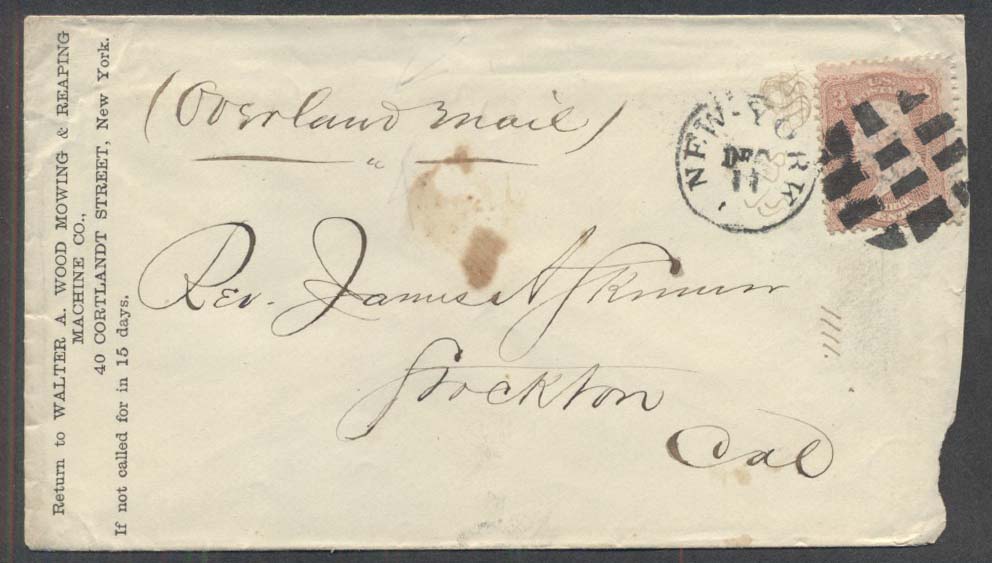 Return to WALTER A. WOOD MOWING & REAPING
MACHINE CO.,
40 CORTLANDT STREET, New York.
If not called for in 15 days.
(Overland Mail)
NEW-YORK
DEC
11
3
U.S.
POSTAGE
Rev. James A Skinner
Stockton
Cal